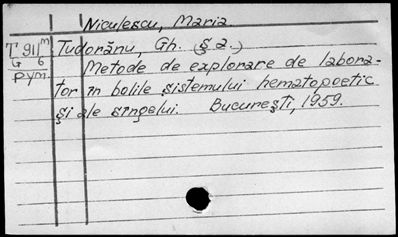 Niculescu, Maria
T 911m Tudorănu, Gh. (ş a.)
G 6 Metode de explorare de labora-
pym. tor în bolile sistemului hematopoetic
şi ale sîngelui. Bucureşti, 1959.